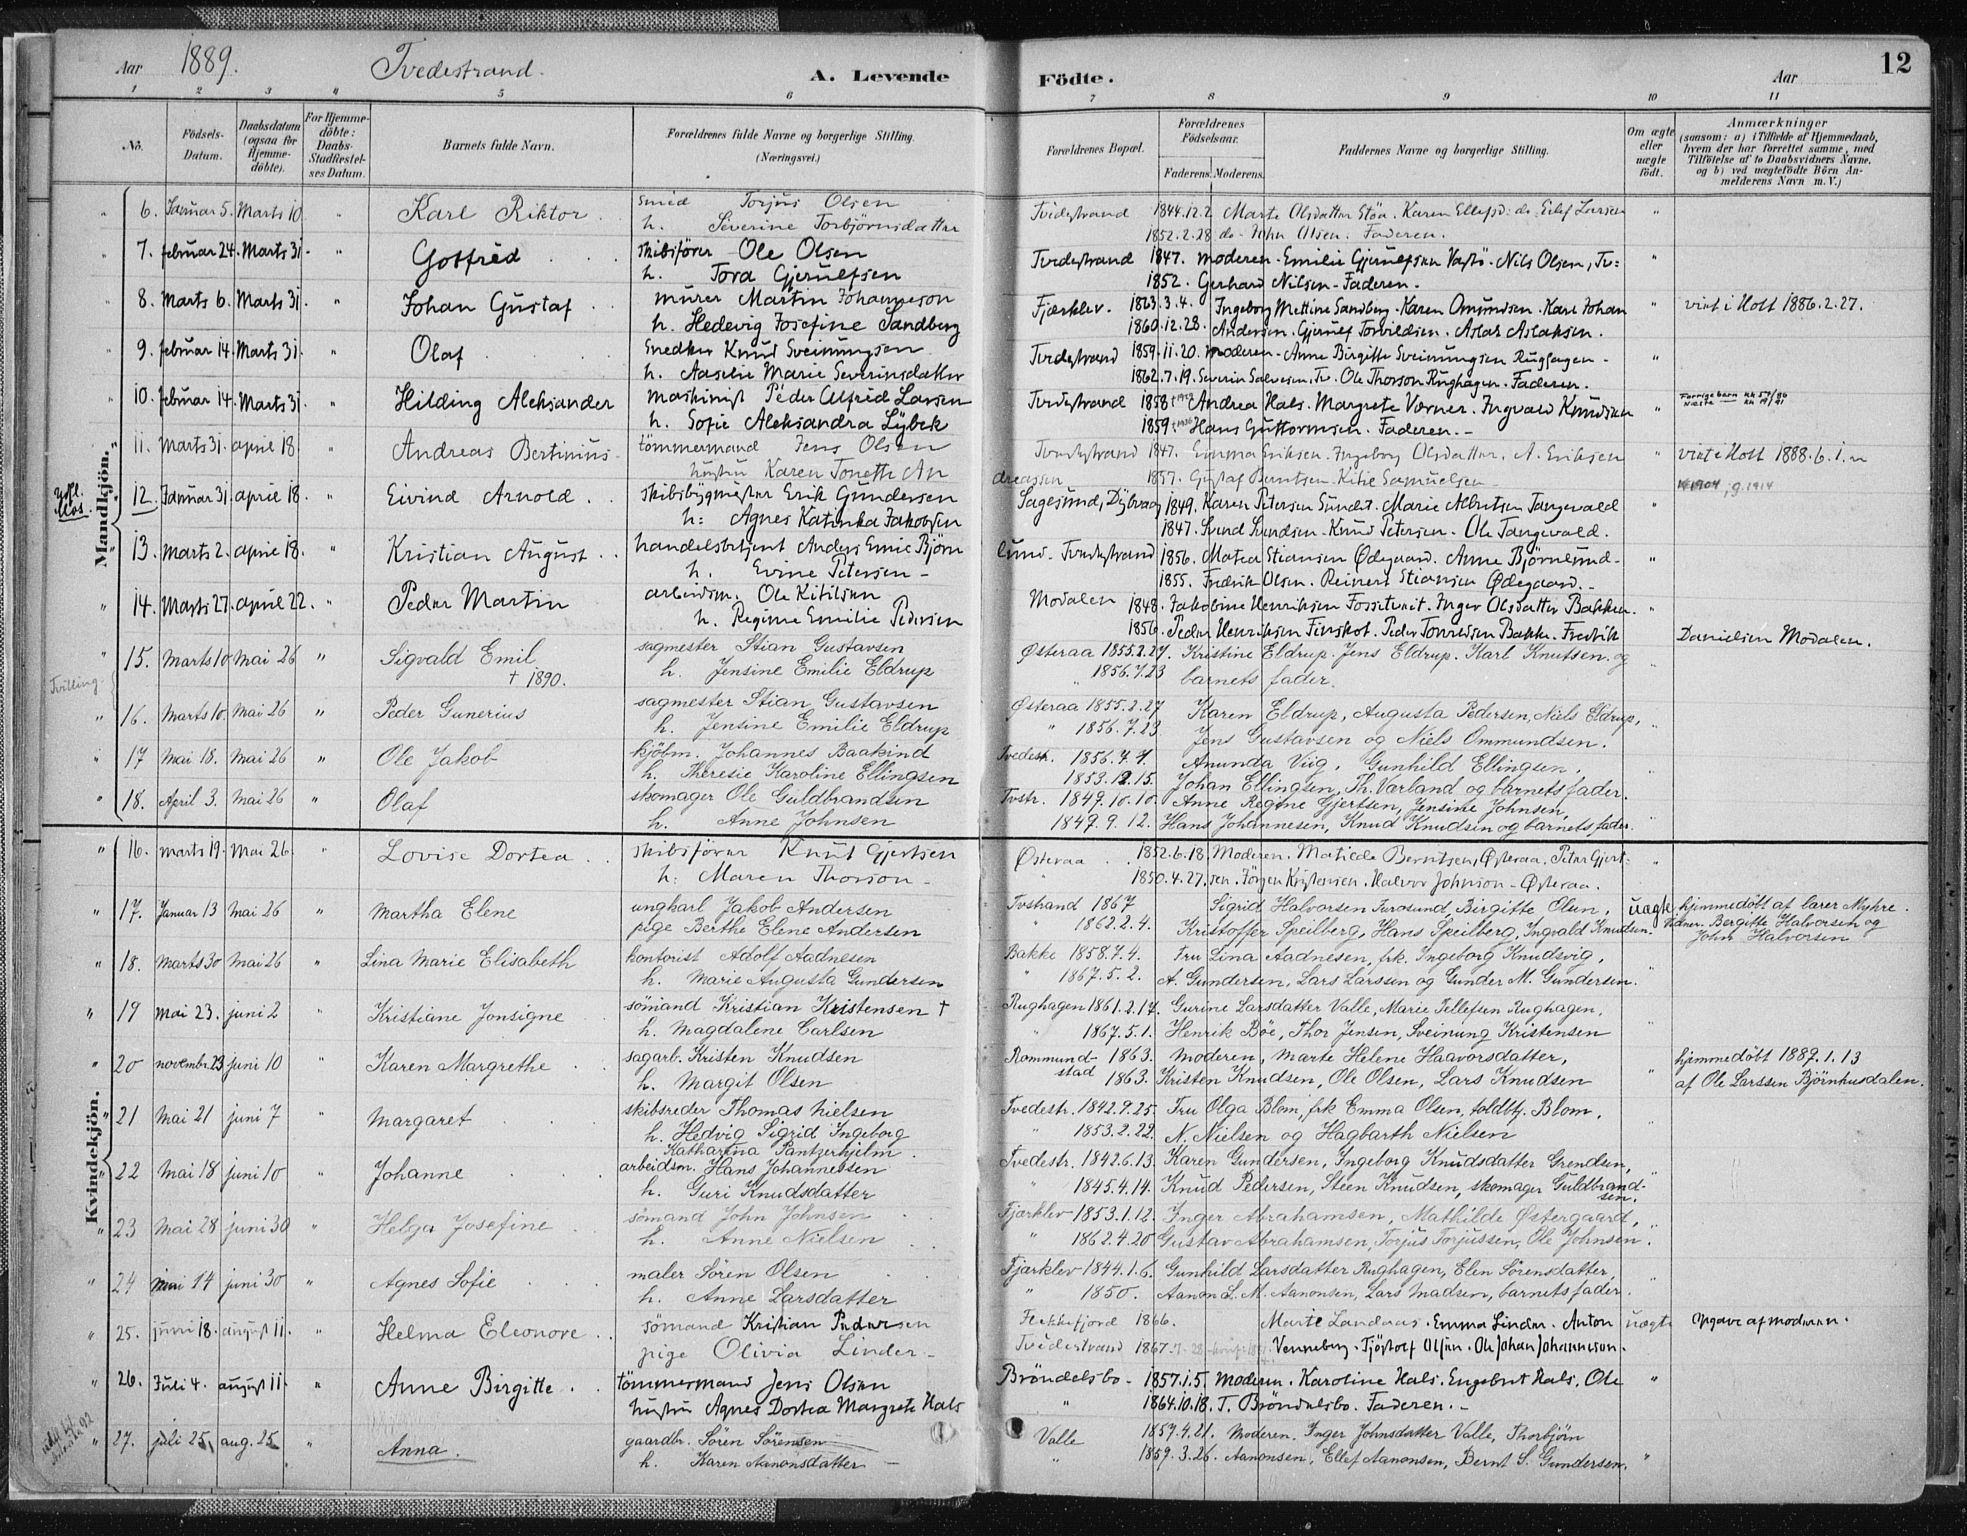 Aar 1889. Tvedestrand. A. Levende Födte. Aar 12
1 2 3 4 5 6 7 8 9 10 11
No. Födsels-Datum. Daabsdatum (ogsaa for Hjemme-döbte). For Hjemme-döbte: Daabs-Stadfæstel-ses Datum. Barnets fulde Navn. Forældrenes fulde Navne og borgerlige Stilling. (Næringsvei.) Forældrenes Bopæl. Forældrenes Födselsaar. Faderens. Moderens. Faddernes Navne og borgerlige Stilling. Om ægte eller uægte födt. Anmærkninger (saasom: a) i Tilfælde af Hjemmedaab, hvem der har forrettet samme, med Tilföielse af to Daabsvidners Navne, og b) ved uægtefödte Börn An-melderens Navn m. V.)
Mandkjön.
6. Januar 5. Marts 10 " Karl Riktor smed Torjus Olsen Tvedestrand 1844.12.2 Marte Olsdatter Stöa. Karen Ellefsd: do. Eilef Larsen "
h. Severine Torbjörnsdatter 1852.2.28 do - John Olsen. Faderen.
7. februar 24. Marts 31. " Gotfred skibsförer Ole Olsen Tvedestrand 1847. moderen - Emilie Gjerulfsen Vastö - Nils Olsen, Tv: "
h. Tora Gjerulfsen 1852. Gerhard Nilsen - Faderen.
8. Marts 6. Marts 31. " Johan Gustaf murer Martin Johanneson Fjærklev. 1863.3.4. Ingeborg Mettine Sandberg - Karen Omundsen - Karl Johan " viet i Holt 1886.2.27.
h. Hedevig Josefine Sandberg 1860.12.28. Andersen. Gjerulf Torvildsen. Aslak Aslaksen.
9. februar 14. Marts 31. " Olaf snedker Knud Sveinungsen Tvedestrand 1859.11.20. moderen - Anne Birgitte Sveinungsen Rughagen - "
h. Aaselie Marie Severinsdatter 1862.7.19. Severin Salvesen, Tv. Ole Thorson Rughagen. Faderen.
10. februar 14. Marts 31. " Hilding Aleksander maskinist Peder Alfred Larsen Tvedestrand 1858 Andrea Hals. Margrete Værner. Ingvald Knudsen " Forrige barn kk 57/86
h. Sofie Aleksandra Lybek 1859 Hans Guttormsen. Faderen. - Næste kk 19/91
11. Marts 31. april 18. " Andreas Bertinius tömmermand Jens Olsen Tvedestrand 1847. Emma Eriksen. Ingeborg Olsdatter. A. Eriksen " viet i Holt 1888.6.1.
hustru Karen Tonette Andreassen 1857. Gustaf Berntsen. Kitie Samuelsen -
12. Januar 31. april 18. " Eivind Arnold skibsbygmester Erik Gundersen Sagesund, Dybvaag 1849. Karen Petersen Sundet. Marie Albretsen Tangevald " 1904, g. 1914
h: Agnes Katinka Jakobsen 1847. Svend Svendsen - Knud Petersen - Ole Tangevald.
13. Marts 2. april 18. " Kristian August handelsbetjent Anders Emil Björnlund - Tvedestrand 1856. Matea Stiansen Ödegaard. Anne Björnlund - "
h. Evine Petersen - 1855. Fredrik Olsen. Reinert Stiansen Ödegaard. -
14. Marts 27. april 22. " Peder Martin arbeidsm. Ole Kitilsen Modalen 1848. Jakobine Henriksen Fossetveit. Inger Olsdatter Bakken. "
h. Regine Emilie Pedersen 1856. Peder Henriksen Finskot. Peder Tonresen Bakke. Fredrik Danielsen Modalen.
Tvilling.
15. Marts 10 Mai 26 " Sigvald Emil sagmester Stian Gustavsen Østeraa 1855.2.27. Kristine Eldrup. Jens Eldrup. Karl Knutsen og
† 1890. h. Jensine Emilie Eldrup " 1856.7.23 barnets fader.
16. Marts 10. Mai 26 " Peder Gunerius sagmester Stian Gustavsen Østeraa 1855.2.27 Karen Eldrup, Augusta Pedersen, Niels Eldrup, "
h. Jensine Emilie Eldrup " 1856.7.23 Jens Gustavsen og Niels Ommundsen.
17 Mai 18. Mai 26 " Ole Jakob kjöbm. Johannes Baakind Tvedestr. 1856.4.4. Anunda Viig, Gunhild Ellingsen, "
h. Theresie Karoline Ellingsen 1853.12.15. Johan Ellingsen, Th. Varland og barnets fader.
18. April 3. Mai 26 " Olaf skomager Ole Guldbrandsen Tvstr. 1849.10.10. Anne Regine Gjertsen, Jensine Johnsen,
h. Anne Johnsen 1849.9.12. Hans Johannesen, Knud Knudsen og barnets fader.
Kvindekjön.
16. marts 19. Mai 26. " Lovise Dortea skibsförer Knut Gjertsen Østeraa 1852.6.18. Moderen. Matilde Berntsen, Østeraa. Peter Gjert- "
h: Maren Thorson - 1850.4.27. sen. Jörgen Kristensen. Halvor Johnson - Østeraa.
17. Januar 13 Mai 26 " Martha Elene ungkarl Jakob Andersen Tvstrand 1867 Sigrid Halvorsen Furosund, Birgitte Olsen, uægte hjemmedöbt af lærer Myhre.
pige Berthe Elene Andersen " 1862.2.4. Kristoffer Speilberg, Hans Speilberg, Ingvald Knudsen. Vidner. Bergitte Halvorsen og John Halvorsen
18. Marts 30 Mai 26 " Lina Marie Elisabeth kontorist Adolf Aadnesen Bakke 1858.7.4. Fru Lina Aadnesen, frk. Ingeborg Knudsvig, "
h. Marie Augusta Gundersen " 1867.5.2. A. Gundersen, Lars Larssen og Gunder M. Gundersen.
19 Mai 23. juni 2 " Kristiane Jonsigne sömand Kristian Kristensen † Rughagen 1861.2.17. Gurine Larsdatter Valle, Marie Tellefsen Rughagen,
h. Magdalene Carlsen " 1867.5.1. Henrik Böe, Thor Jensen, Sveinung Kristensen
20 novembr. 23 juni 10 " Karen Margrethe sagarb. Kristen Knudsen Rommundstad 1863. Moderen, Marte Helene Haavorsdatter, " hjemmedöbt 1889.1.13
h. Margit Olsen 1863. Kristen Knudsen, Ole Olsen, Lars Knudsen af Ole Larssen Björnhusdalen.
21 Mai 21 juni 7 " Margaret skibsreder Thomas Nielsen Tvedestr. 1842.9.25. Fru Olga Blom, frk Emma Olsen, toldbtj. Blom,
h. Hedvig Sigrid Ingeborg Katharina Pantzerhjelm. " 1853.2.22. N. Nielsen og Hagbarth Nielsen
22 Mai 18 juni 10 " Johanne arbeidsm. Hans Johannessen Tvedestr. 1842.6.13. Karen Gundersen, Ingeborg Knudsdatter Grendsen, "
h. Guri Knudsdatter " 1845.4.14. Knud Pedersen, Steen Knudsen, skomager Guldbrandsen.
23 Mai 28 juni 30 " Helga Josefine sömand John Johnsen Fjærklev 1853.1.12. Inger Abrahamsen, Mathilde Østergaard, "
h. Anne Nielsen " 1862.4.20 Gustav Abrahamsen, Torjus Torjussen, Ole Johnsen.
24 Mai 14 juni 30 " Agnes Sofie maler Sören Olsen Fjærklev 1844.1.6. Gunhild Larsdatter Rughagen, Elen Sörensdatter, "
h. Anne Larsdatter " 1850. Aanon L. M. Aanonsen, Lars Madsen, barnets fader.
25. juni 18. august 11. " Helma Eleonore sömand Kristian Pedersen Flekkefjord 1866. Marie Landaas. Emma Linder. Anton uægte Opgave af moderen.
pige Olivia Linder - Tvedestrand 1867 Venneberg. Fjöstolf Olsen. Ole Johan Johannesson.
26. Juli 4. august 11. " Anne Birgitte tömmermand Jens Olsen Bröndelsbo - 1857.1.5. Moderen. Karoline Hals. Engebret Hals. Ole "
hustru Agnes Dortea Margrete Hals " 1864.10.18. T. Bröndelsbo. Faderen. -
27. juli 25 aug. 25 " Anna gaardbr. Sören Sörensen Valle 1857.4.21. Moderen. Inger Johnsdatter Valle, Thorbjörn
h. Karen Aanonsdatter - " 1859.3.26. Aanonsen, Ellef Aanonsen, Bernt S. Gundersen. "